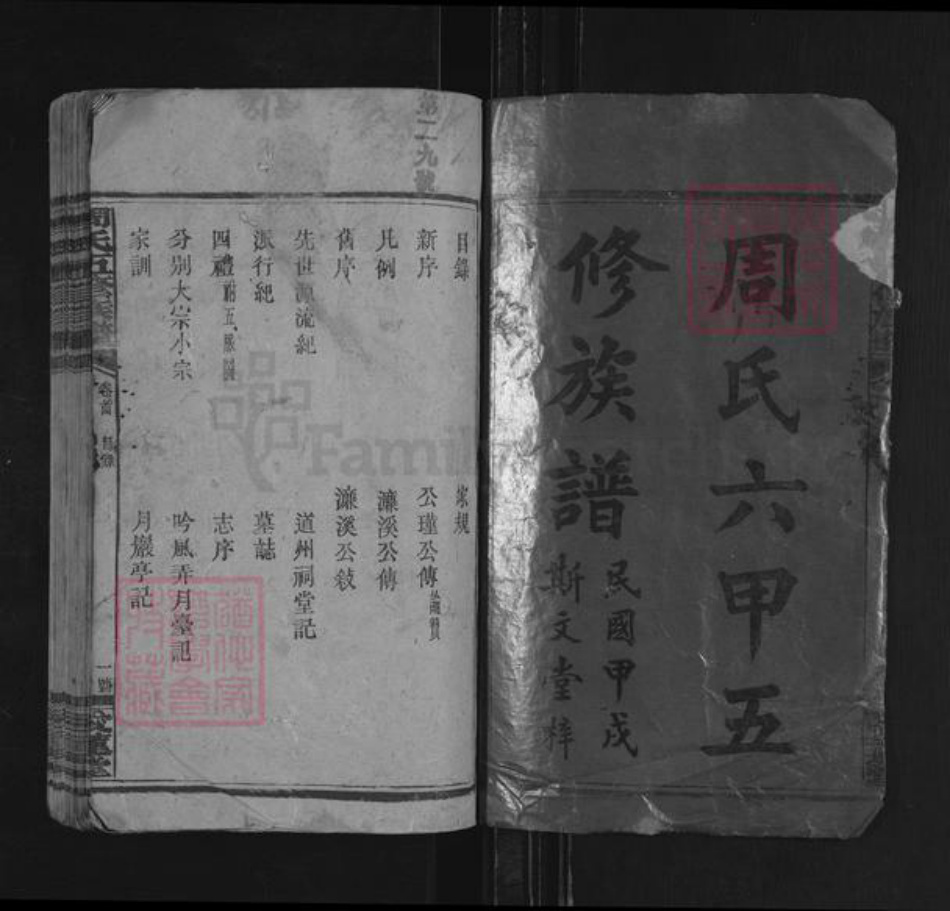 周氏六甲五
修族譜
民國甲戌
斯文堂梓
第二九號
目錄
家規
新序
公瑾公傳
凡例
濂溪公傳
舊序
濂溪公敍
先世源流紀
道州祠堂記
派行紀
墓誌
四禮附五服圖
志序
分別大宗小宗
吟風弄月臺記
家訓
月巖亭記
周氏五修族譜
卷首
目錄
一
愛蓮堂